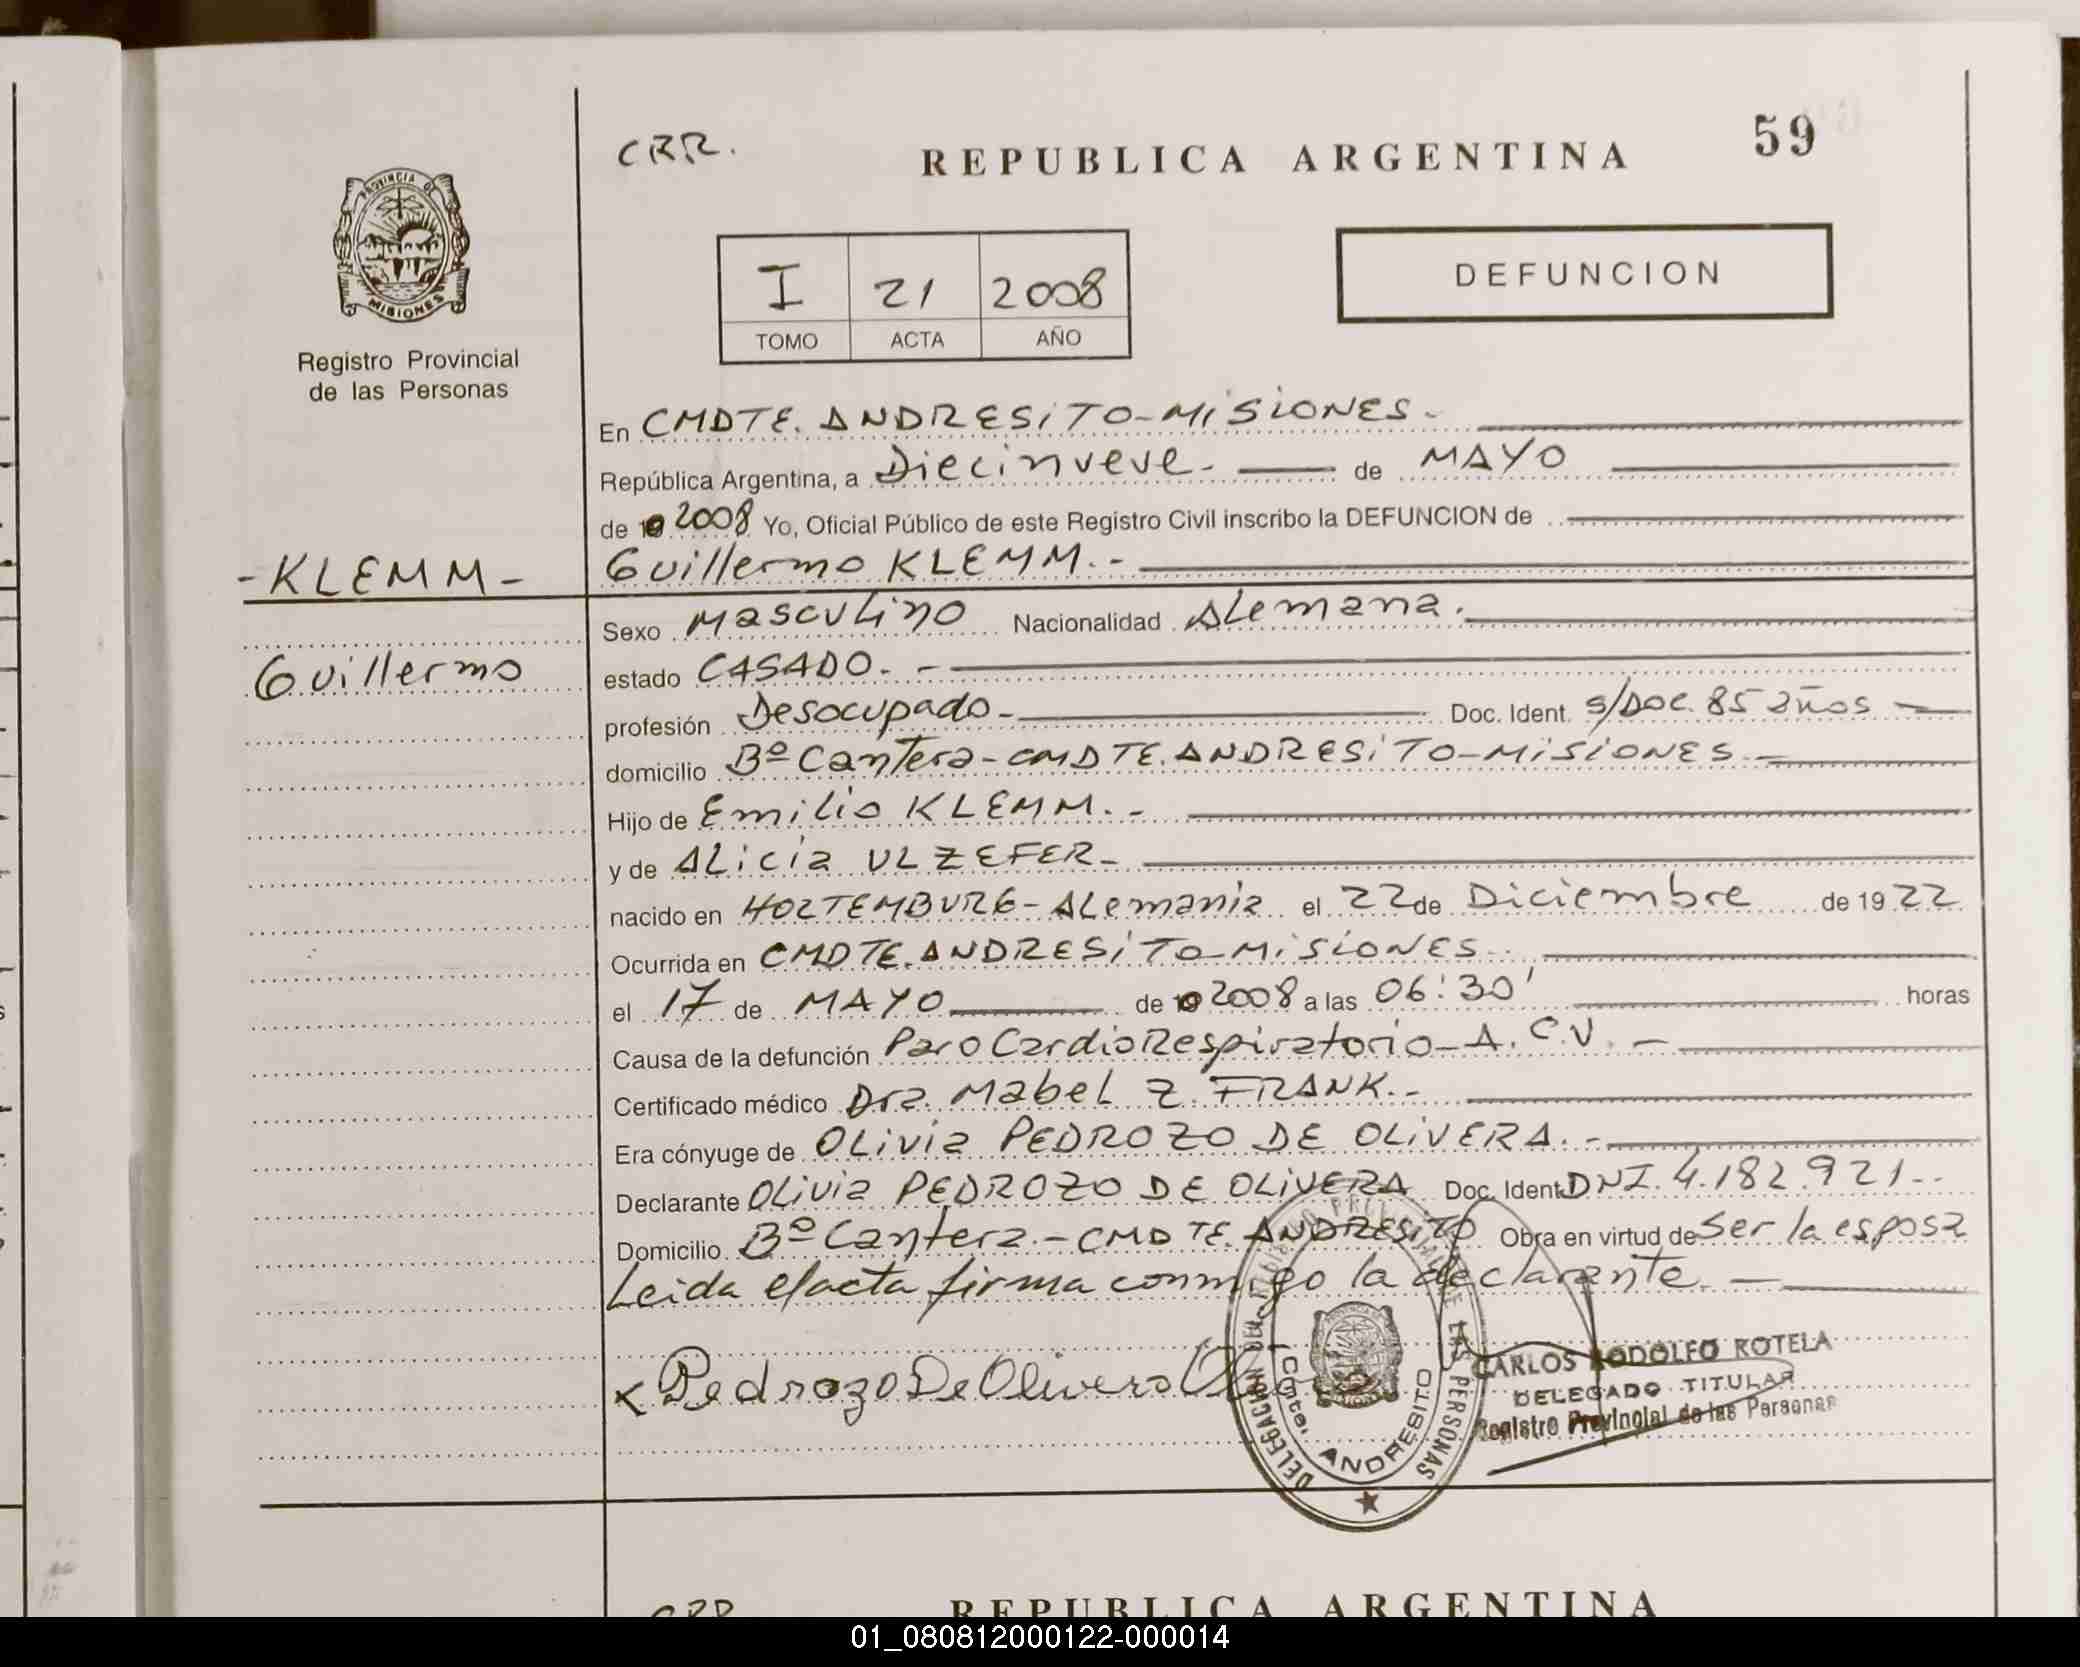 59
CRR.
REPUBLICA ARGENTINA
PROVINCIA DE
MISIONES
Registro Provincial
de las Personas
I 21 2008
TOMO ACTA AÑO
DEFUNCION
En CMDTE. ANDRESiTO-MiSiONES.-
República Argentina, a Diecinueve.- de MAYO
de 19 2008 Yo, Oficial Público de este Registro Civil inscribo la DEFUNCION de
-KLEMM- Guillermo KLEMM.-
Sexo Masculino Nacionalidad Alemana.
Guillermo estado CASADO.-
profesión Desocupado- Doc. Ident. s/Doc. 85 años
domicilio Bº Cantera-CMDTE. ANDRESiTO-MiSiONES.-
Hijo de Emilio KLEMM.-
y de ALicia ULZEFER-
nacido en HOLTEMBURG-ALemania el 22 de Diciembre de 1922
Ocurrida en CMDTE. ANDRESiTO-MiSiONES.
el 17 de MAYO de 19 2008 a las 06:30' horas
Causa de la defunción Paro CardioRespiratorio-A.C.V.-
Certificado médico Dra. Mabel Z. FRANK.-
Era cónyuge de OLivia PEDROZO DE OLiVERA.-
Declarante OLivia PEDROZO DE OLiVERA Doc. Ident. DNI. 4.182.921.-
Domicilio Bº Cantera.-CMDTE. ANDRESiTO Obra en virtud de Ser la esposa
Leida el acta firma conmigo la declarante.-
x Pedrozo De Olivera
DELEGACION DEL REGISTRO PROVINCIAL DE LAS PERSONAS
Cmte. ANDRESITO
CARLOS RODOLFO ROTELA
DELEGADO TITULAR
Registro Provincial de las Personas
REPUBLICA ARGENTINA
01_080812000122-000014